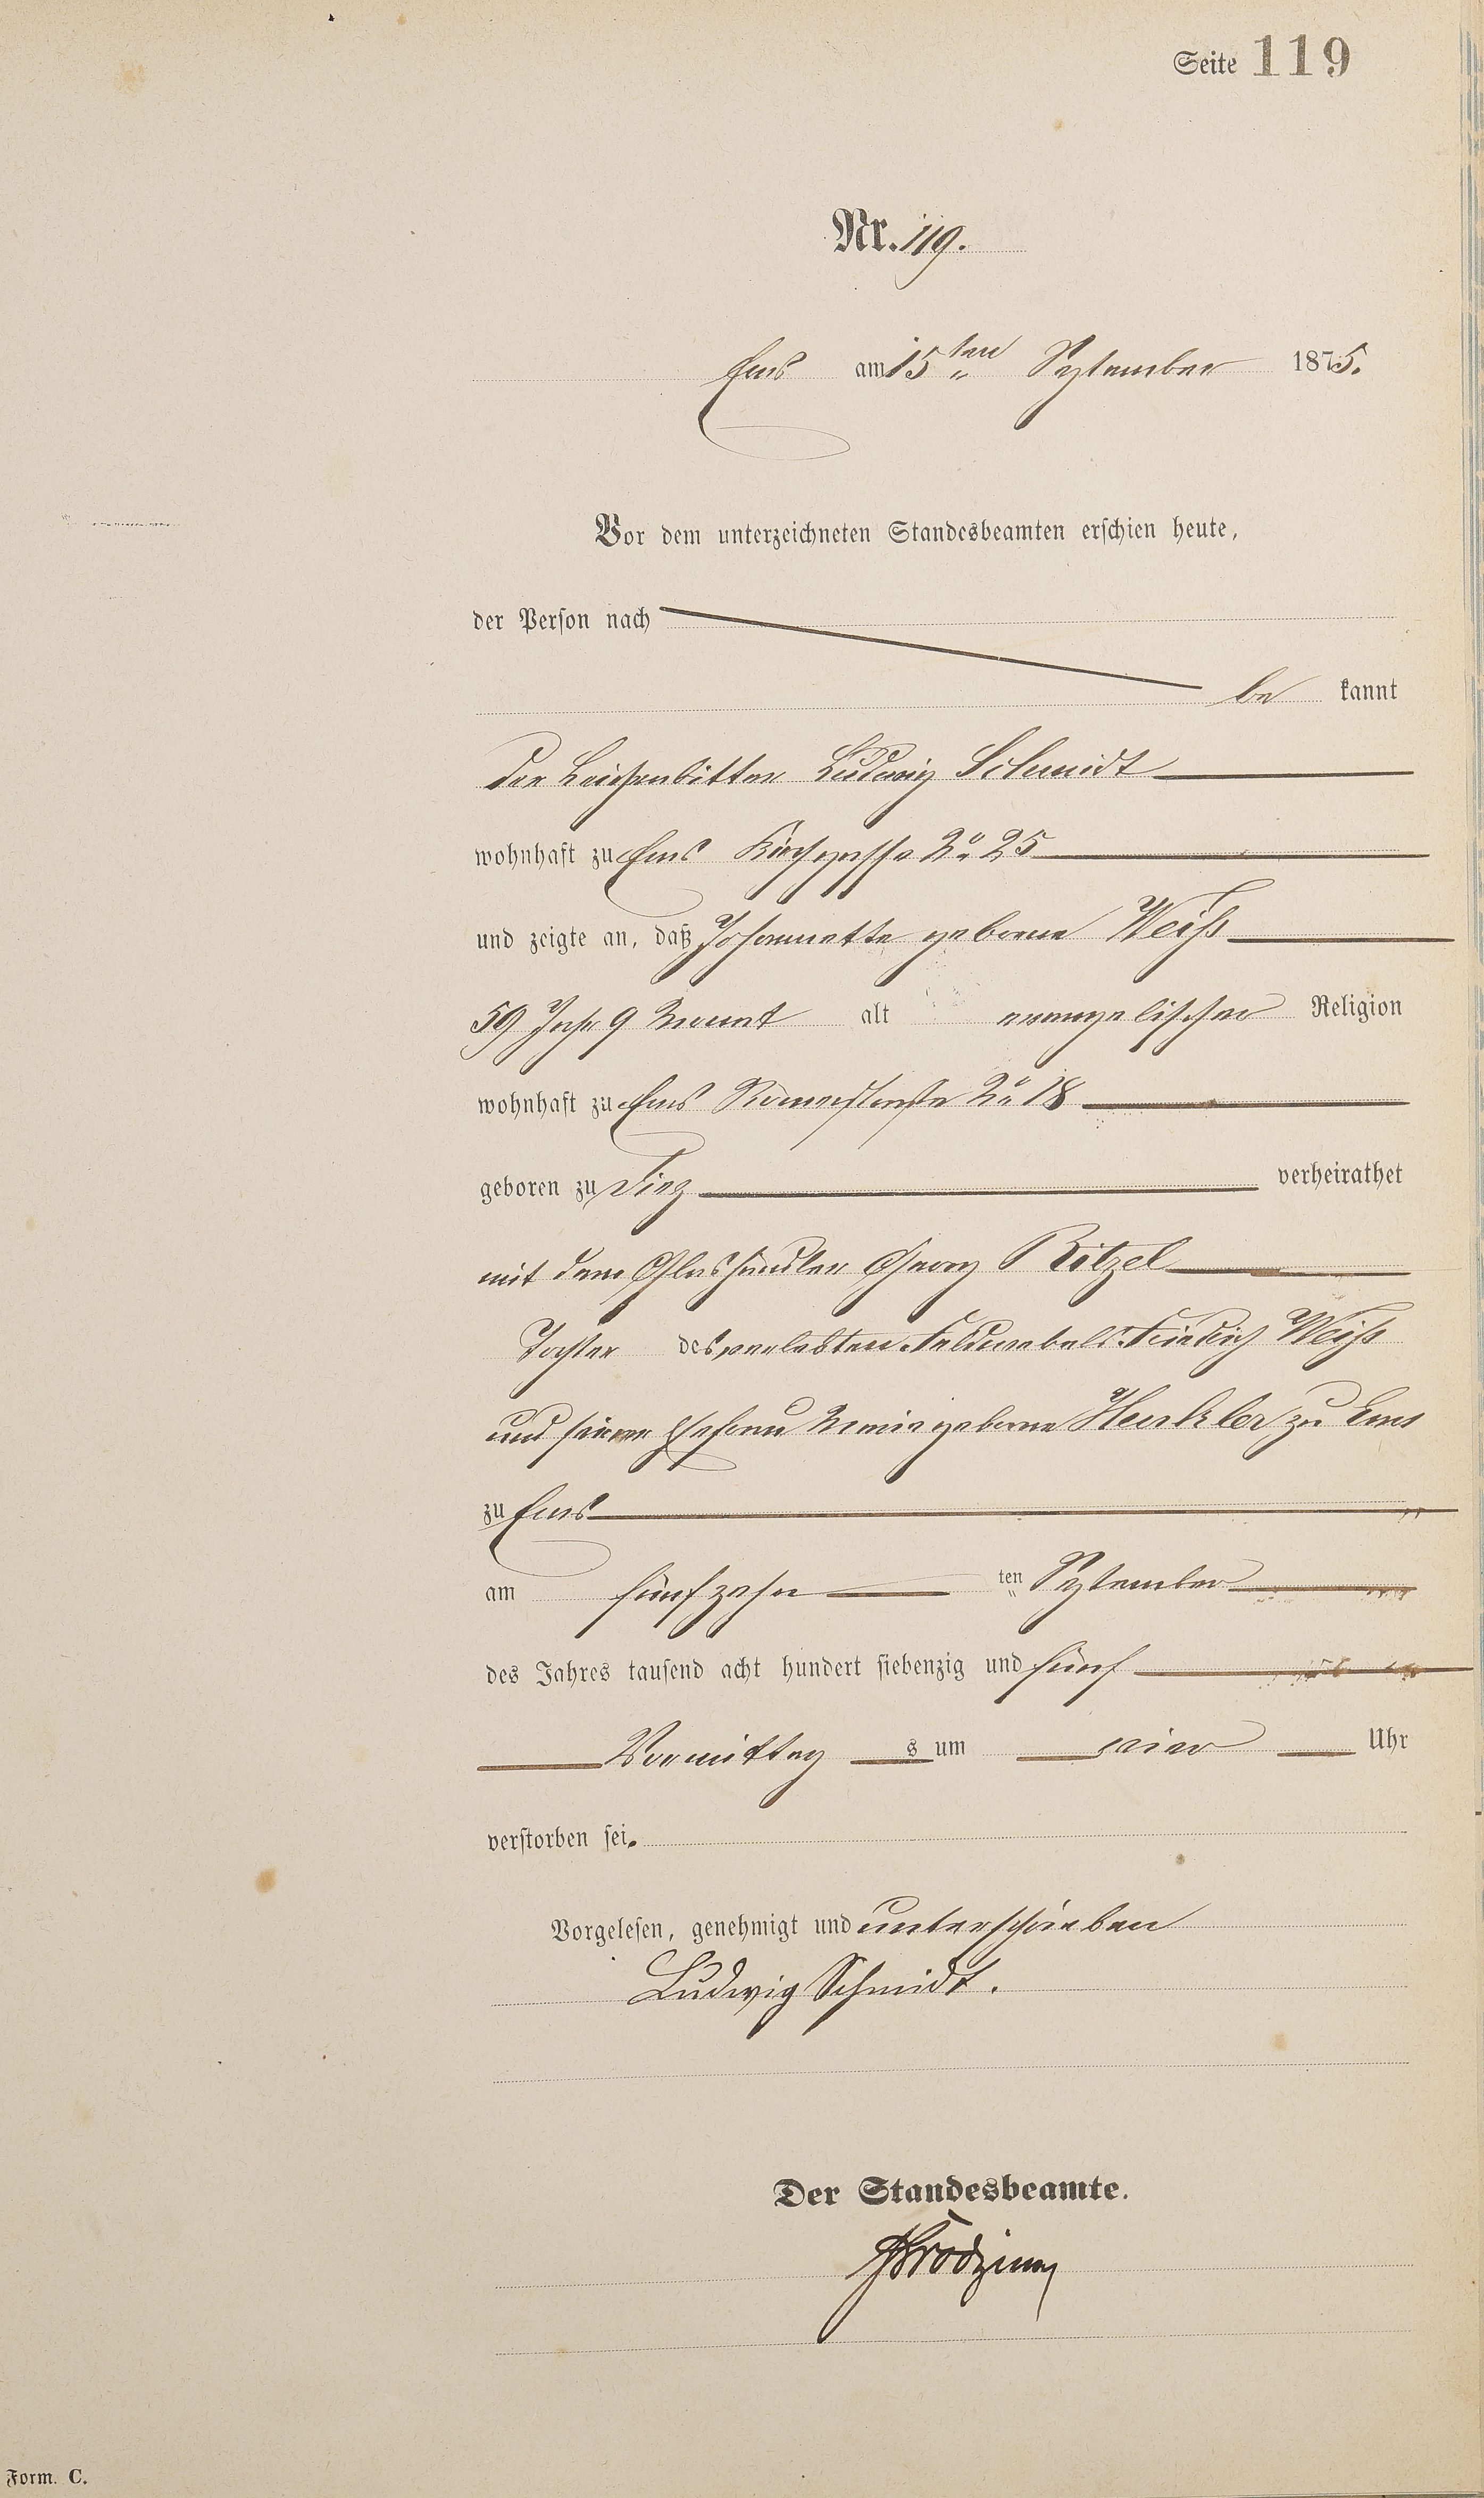 Seite 119
Nr. 119.
Ems am 15ten September 1875.
Vor dem unterzeichneten Standesbeamten erschien heute,
der Person nach
be kannt
der Leichenbitter Ludwig Schmidt
wohnhaft zu Ems Kirchgasse No 25
und zeigte an, daß Johannette geborne Weiß
59 Jahr 9 Monat alt evangelischer Religion
wohnhaft zu Ems Römerstraße No 18
geboren zu Diez verheirathet
mit dem Glashändler Georg Ritzel
Tochter des verlebten Feldwebels Friedrich Weiß
und seiner Ehefrau Marie geborne Henkler zu Ems
zu Ems
am fünfzehn ten September
des Jahres tausend acht hundert siebenzig und fünf
Vormittag s um vier Uhr
verstorben sei.
Vorgelesen, genehmigt und unterschrieben
Ludwig Schmidt.
Der Standesbeamte.
Form. C.